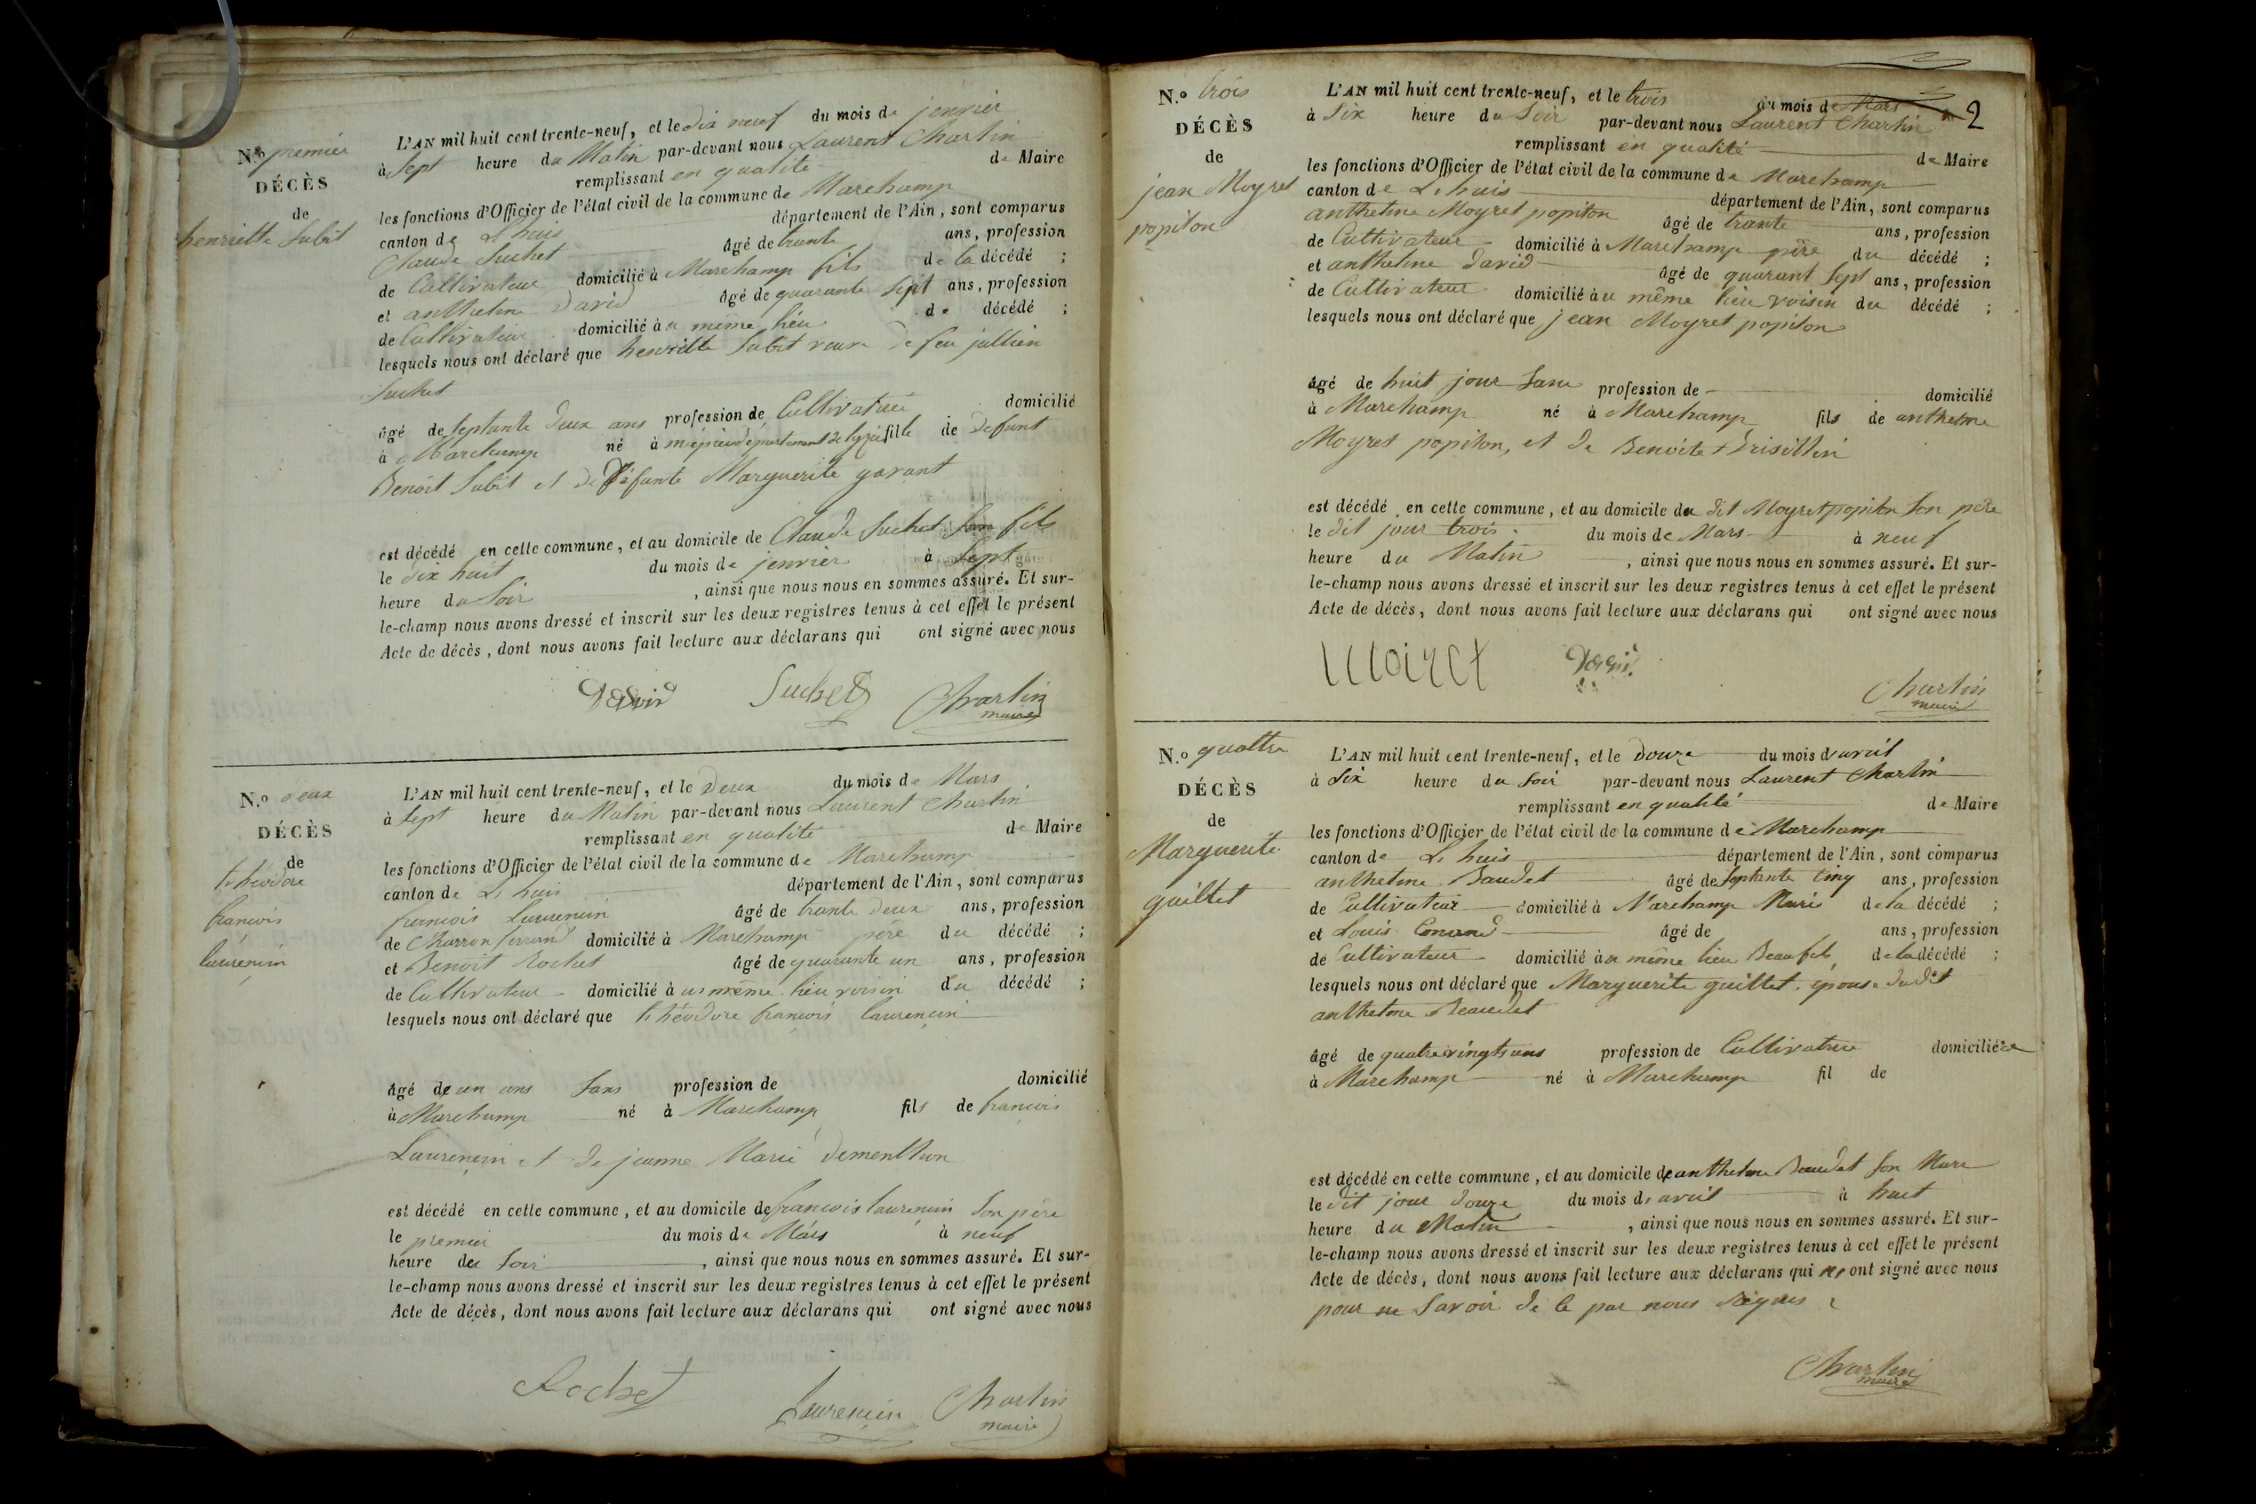 N.o premier
DÉCÈS
de
henriette Subit
L'AN mil huit cent trente-neuf, et le dix neuf du mois de jenvier
à Sept heure du Matin par-devant nous Laurent Chartin
remplissant en qualité de Maire
les fonctions d'Officier de l'état civil de la commune de Marchamp
canton de L huis département de l'Ain, sont comparus
Claude Suchet âgé de trante ans, profession
de Cultivateur domicilié à Marchamp fils de la décédé ;
et anthelme David âgé de quarante Sept ans, profession
de Cultivateur domicilié à u même lieu de décédé ;
lesquels nous ont déclaré que henriette Subit veuve de feu jullien
Suchet
âgé de septante deux ans profession de Cultivatrice domicilié
à Marchamp né à département de fille de defunt
Benoit Subit et de défunte Marguerite garant
est décédé en cette commune, et au domicile de Claude Suchet son fils
le dix huit du mois de jenvier à Sept
heure du Soir , ainsi que nous nous en sommes assuré. Et sur-
le-champ nous avons dressé et inscrit sur les deux registres tenus à cet effet le présent
Acte de décès, dont nous avons fait lecture aux déclarans qui ont signé avec nous
David Suchet Chartin
maire
N.o deux
DÉCÈS
de
théodore
françois
laurençin
L'AN mil huit cent trente-neuf, et le Deux du mois de Mars
à Sept heure du Matin par-devant nous Laurent Chartin
remplissant en qualité de Maire
les fonctions d'Officier de l'état civil de la commune de Marchamp
canton de L huis département de l'Ain, sont comparus
françois laurençin âgé de trante deux ans, profession
de Charron domicilié à Marchamp père du décédé ;
et Benoit Rochet âgé de quarante un ans, profession
de Cultivateur domicilié à u même lieu voisin du décédé ;
lesquels nous ont déclaré que théodore françois laurençin
âgé de un ans Sans profession de domicilié
à Marchamp né à Marchamp fils de françois
Laurençin et de jeanne Marie dementhon
est décédé en cette commune, et au domicile de françois laurençin Son père
le premier du mois de Mars à neuf
heure du Soir , ainsi que nous nous en sommes assuré. Et sur-
le-champ nous avons dressé et inscrit sur les deux registres tenus à cet effet le présent
Acte de décès, dont nous avons fait lecture aux déclarans qui ont signé avec nous
Rochet Laurençin Chartin
maire
2
N.o trois
DÉCÈS
de
jean Moyret
popiton
L'AN mil huit cent trente-neuf, et le trois du mois de Mars
à Six heure du Soir par-devant nous Laurent Chartin
remplissant en qualité de Maire
les fonctions d'Officier de l'état civil de la commune de Marchamp
canton de L huis département de l'Ain, sont comparus
anthelme Moyret popiton âgé de trante ans, profession
de Cultivateur domicilié à Marchamp père du décédé ;
et anthelme David âgé de quarant Sept ans, profession
de Cultivateur domicilié à u même lieu voisin du décédé ;
lesquels nous ont déclaré que jean Moyret popiton
âgé de huit jour Sans profession de domicilié
à Marchamp né à Marchamp fils de anthelme
Moyret popiton, et de Benoite
est décédé en cette commune, et au domicile du dit Moyret popiton Son père
le dit jour trois du mois de Mars à neuf
heure du Matin , ainsi que nous nous en sommes assuré. Et sur-
le-champ nous avons dressé et inscrit sur les deux registres tenus à cet effet le présent
Acte de décès, dont nous avons fait lecture aux déclarans qui ont signé avec nous
Moiret David Chartin
maire
N.o quattre
DÉCÈS
de
Marguerite
guillet
L'AN mil huit cent trente-neuf, et le Douze du mois d'avril
à Six heure du Soir par-devant nous Laurent Chartin
remplissant en qualité de Maire
les fonctions d'Officier de l'état civil de la commune de Marchamp
canton de L huis département de l'Ain, sont comparus
anthelme Baudet âgé de Septante Cinq ans, profession
de Cultivateur domicilié à Marchamp Mari de la décédé ;
et Louis âgé de ans, profession
de Cultivateur domicilié à u même lieu Beau fils de la décédé ;
lesquels nous ont déclaré que Marguerite guillet, épouse dudit
anthelme Beaudet
âgé de quatre vingts ans profession de Cultivatrice domiciliée
à Marchamp né à Marchamp fil de
est décédé en cette commune, et au domicile de anthelme Baudet Son Mari
le dit jour douze du mois d'avril à huit
heure du Matin , ainsi que nous nous en sommes assuré. Et sur-
le-champ nous avons dressé et inscrit sur les deux registres tenus à cet effet le présent
Acte de décès, dont nous avons fait lecture aux déclarans qui ont signé avec nous
pour ne Savoir de ce par nous
Chartin
maire